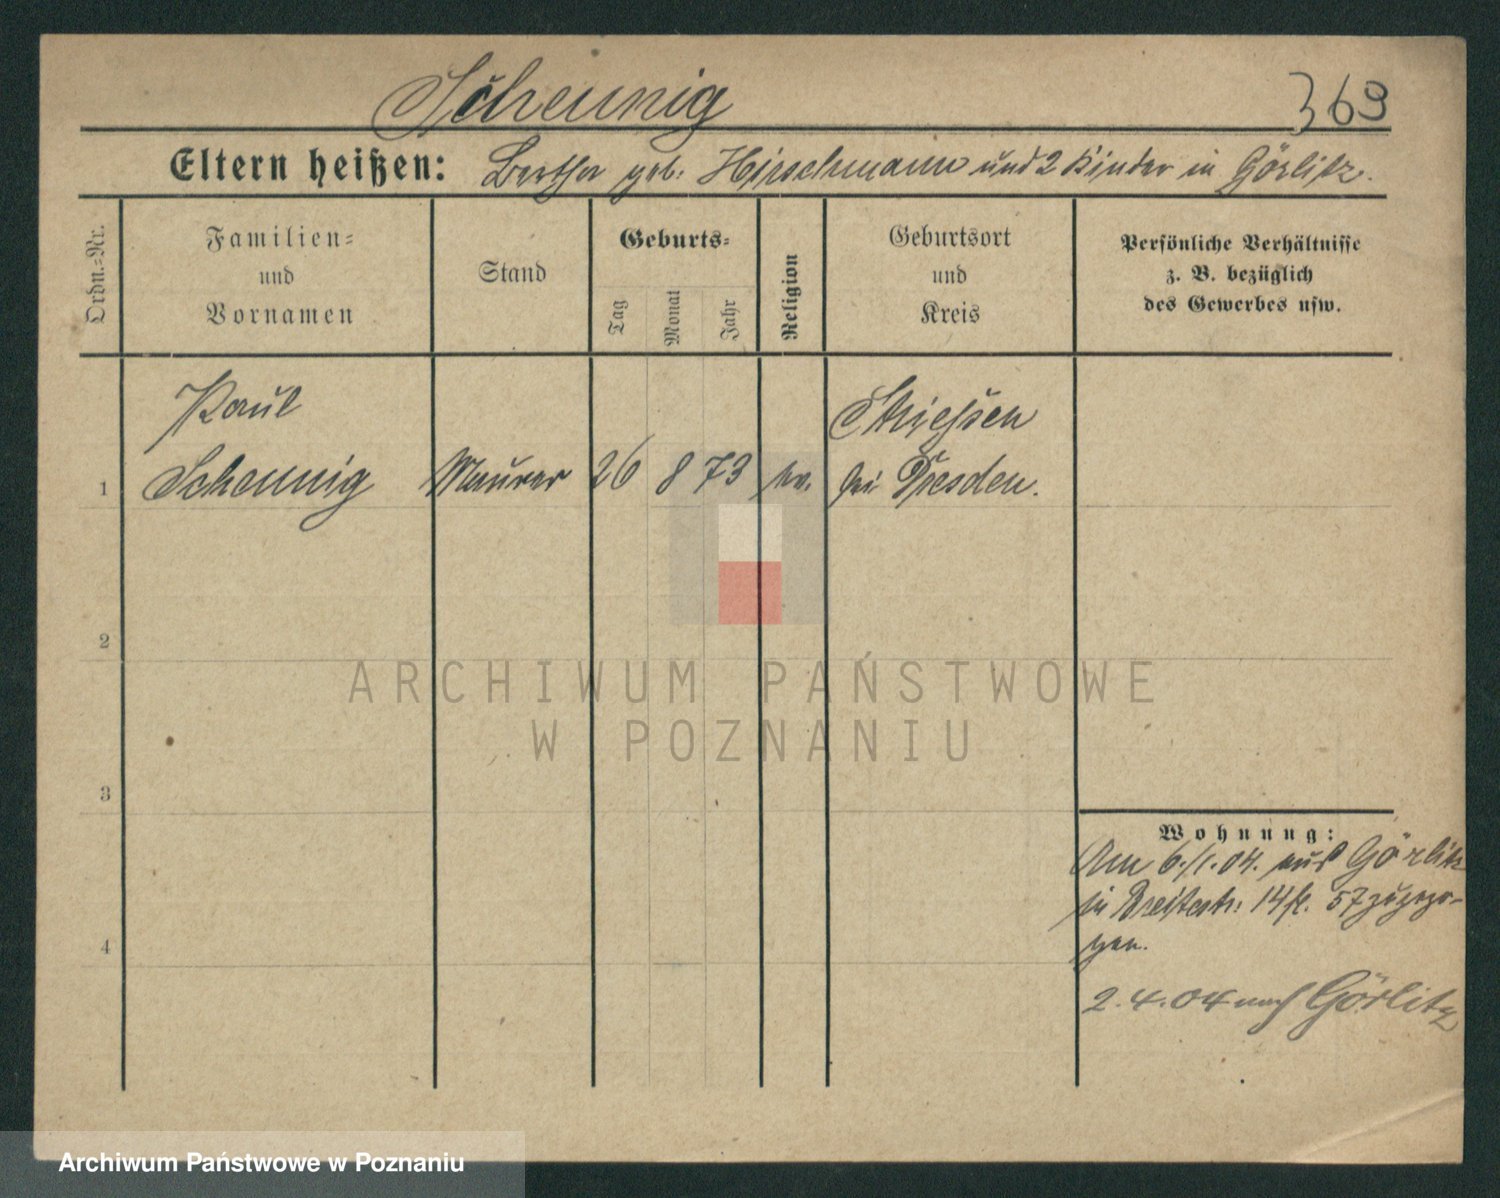 Scheunig
369
Eltern heißen: Bertha geb. Hirschmann und 2 Kinder in Görlitz.
Ordn.-Nr.
Familien-
und
Vornamen
Stand
Geburts-
Tag
Monat
Jahr
Religion
Geburtsort
und
Kreis
Persönliche Verhältnisse
z. B. bezüglich
des Gewerbes usw.
Paul
Scheunig
Maurer
26
8
73
ev.
Striessen
bei Dresden.
1
2
3
4
Wohnung:
Am 6./1.04. aus Görlitz
in Breitestr. 14 57 zugezo-
gen.
2.4.04 nach Görlitz
ARCHIWUM PAŃSTWOWE
W POZNANIU
Archiwum Państwowe w Poznaniu